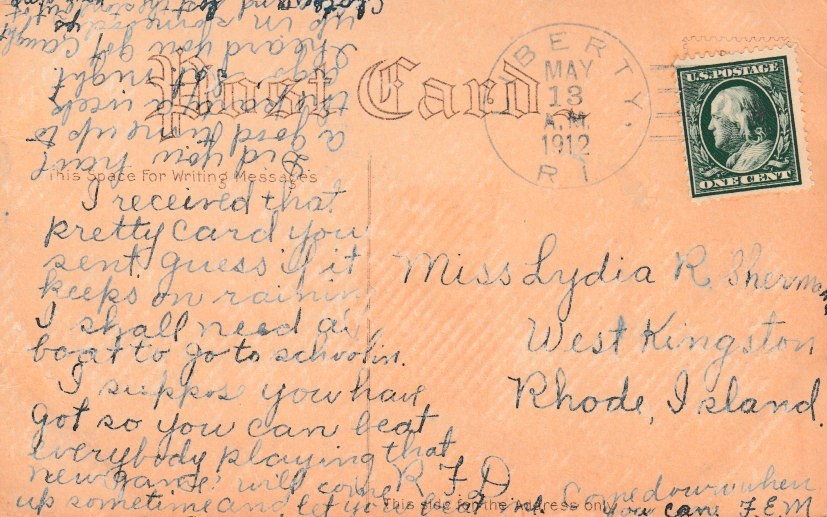 Post Card
This Space For Writing Messages
LIBERTY, R I
MAY
13
A.M.
1912
U.S. POSTAGE
ONE CENT
I received that
pretty card you
sent, guess if it
keeps on rainin
I shall need a
boat to go to school in.
I suppos you hav
got so you can beat
everybody playing that
new game, will come
up sometime and let you beat me. Come down when
you can. F.E.M
Did you hav
a good time up to
a week
ago last night
I heard you got caught
up in
Miss Lydia R. Sherman
West Kingston
Rhode, Island.
R F D
This side for the Address only